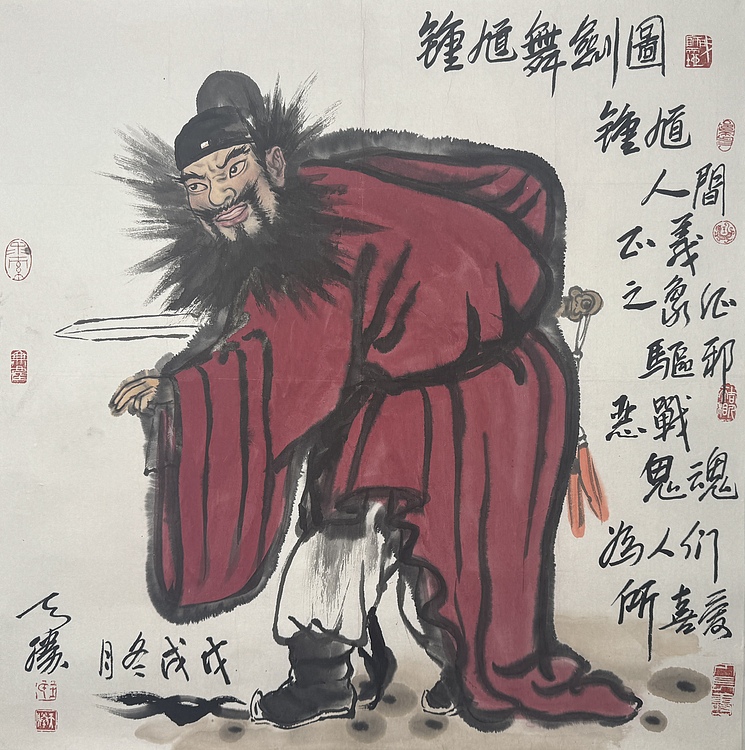 鍾馗舞劍圖
鍾馗
人間
正義
之象征
驅邪
惡戰
鬼魂
為人们
所喜愛
戊戌冬月
勝